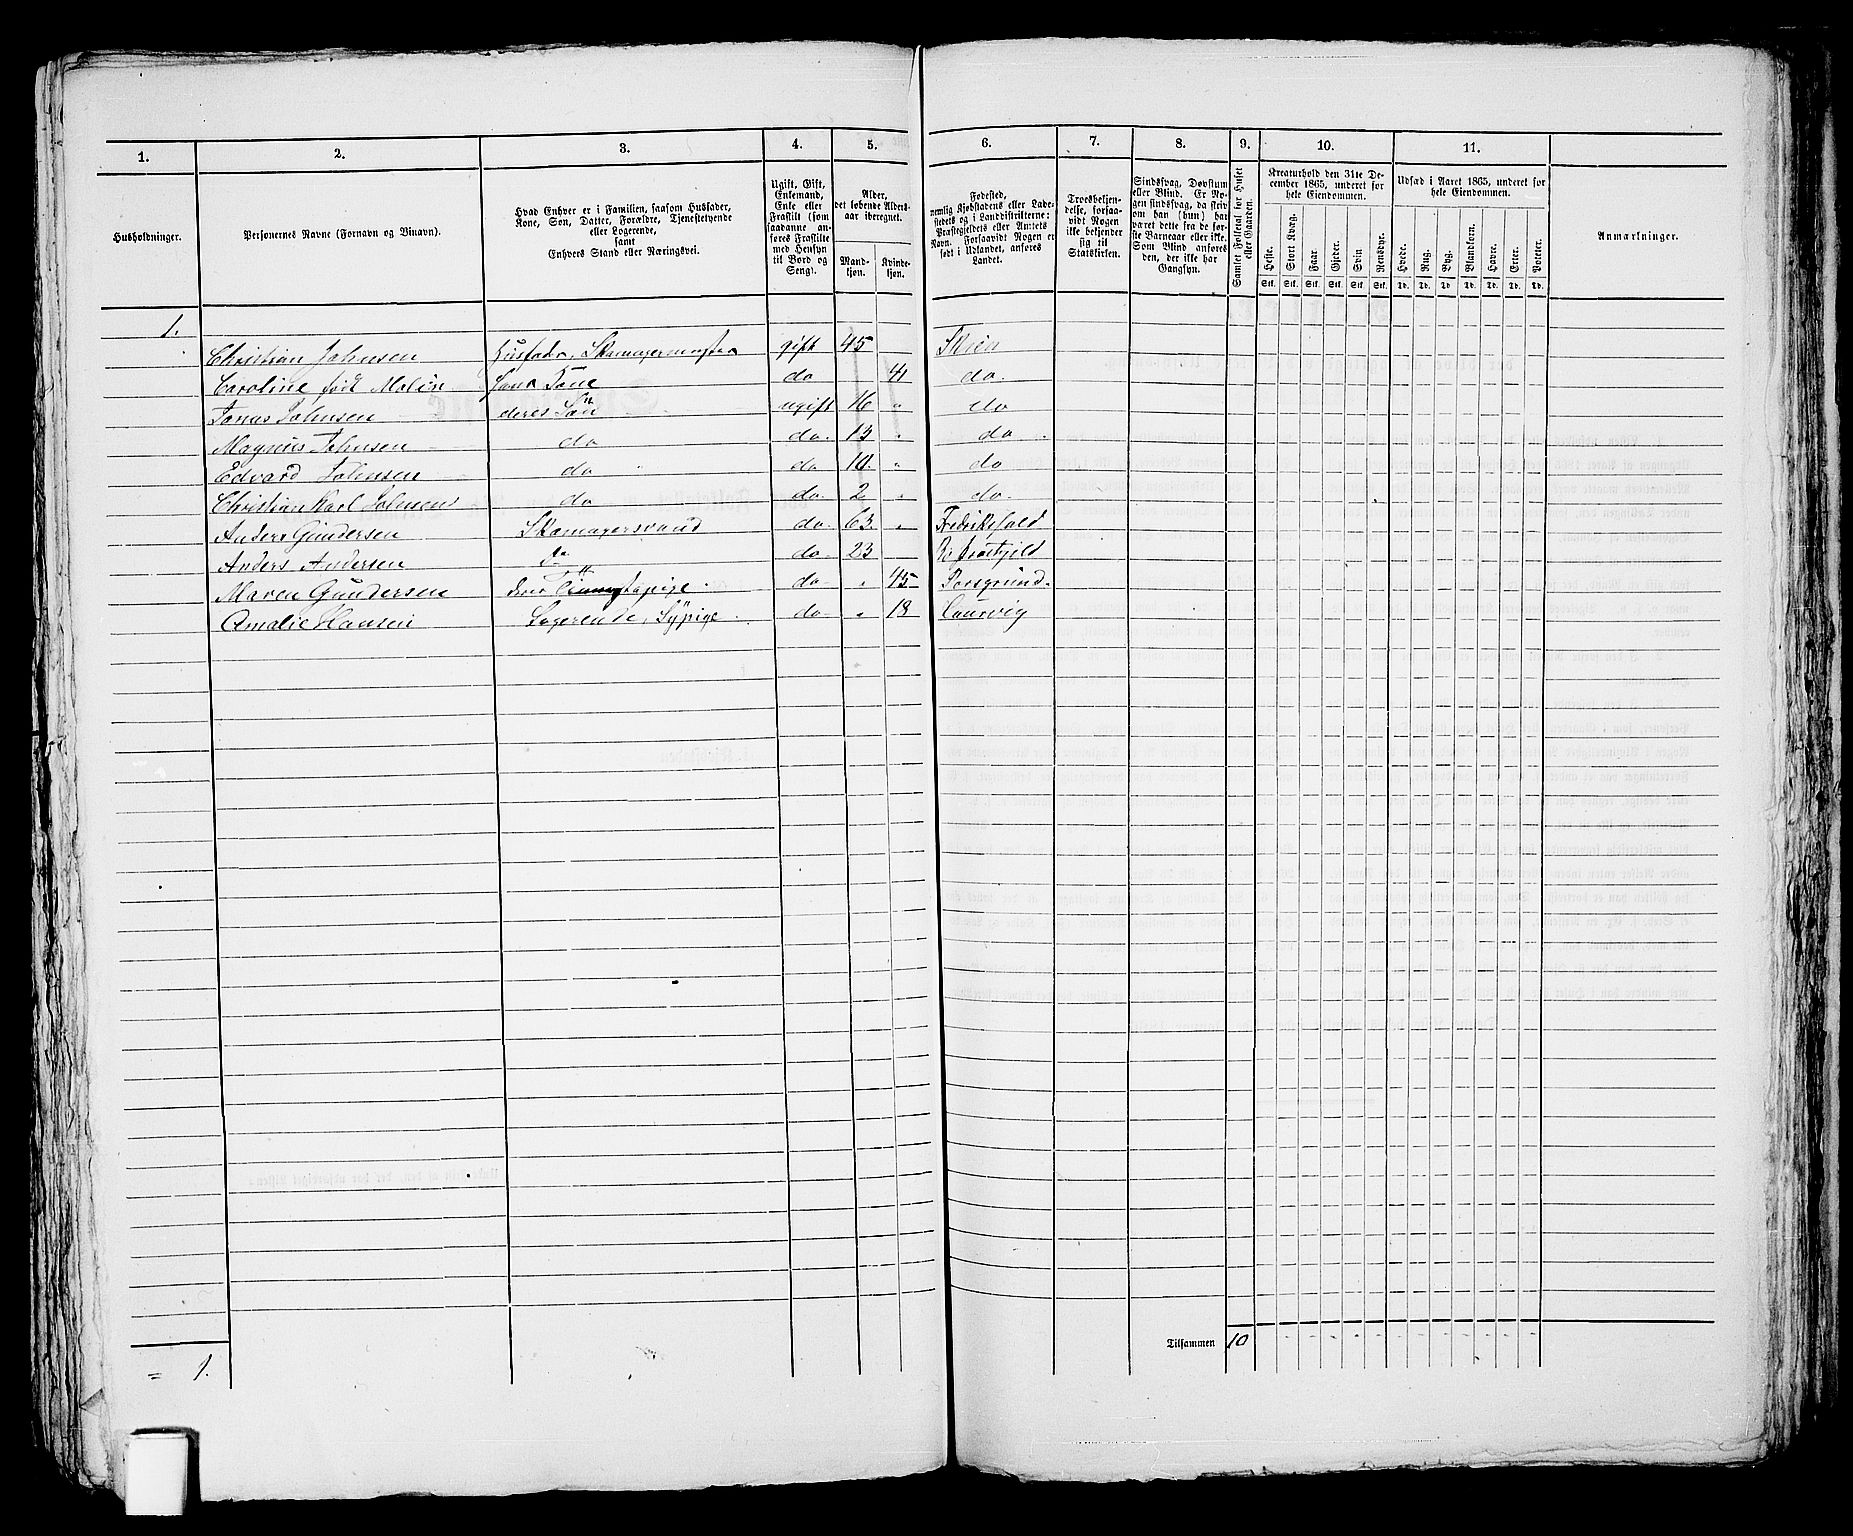 1. 2. 3. 4. 5. 6. 7. 8. 9. 10. 11.
Husholdninger.
Personernes Navne (Fornavn og Binavn).
Hvad Enhver er i Familien, saasom Husfader,
Kone, Søn, Datter, Forældre, Tjenestetyende
eller Logerende,
samt
Enhvers Stand eller Næringsvei.
Ugift, Gift,
Enkemand,
Enke eller
Fraskilt (som
saadanne an-
føres Fraskilte
med Hensyn
til Bord og
Seng).
Alder,
det løbende Alders-
aar iberegnet.
Mand-
kjøn.
Kvinde-
kjøn.
Fødested,
nemlig Kjøbstadens eller Lade-
stedets og i Landdistrikterne:
Præstegjeldets eller Amtets
Navn. Forsaavidt Nogen er
født i Udlandet, anføres
Landet.
Troesbekjen-
delse, forsaa-
vidt Nogen
ikke bekjender
sig til
Statskirken.
Sindssvag, Døvstum
eller Blind. Er No-
gen sindssvag, da skriv
om han (hun) har
været dette fra de før-
ste Barneaar eller ikke.
Som Blind anføres
den, der ikke har
Gangsyn.
Samlet Folketal for Huset
eller Gaarden.
Kreaturhold den 31te De-
cember 1865, underet for
hele Eiendommen.
Heste. Stort Kvæg. Faar. Gjeder. Svin. Rensdyr.
Stk. Stk. Stk. Stk. Stk. Stk.
Udsæd i Aaret 1865, underet for
hele Eiendommen.
Hvede. Rug. Byg. Blandkorn. Havre. Erter. Poteter.
Td. Td. Td. Td. Td. Td. Td.
Anmærkninger.
1.
Christian Johnsen Husfader, Skomagermester gift 45 Skien
Caroline født Malin hans Kone do 41 do.
Jonas Johnsen deres Søn ugift 16 " do
Magnus Johnsen do do. 13 " do
Edvard Johnsen do do 10. " do
Christian Karl Johnsen do do. 2 " do.
Anders Gundersen Skomagersvend do. 63. " Fredrikshald
Anders Andersen do do. 23 Præstegjeld
Maren Gundersen deres Tjenestepige do. " 45 Porsgrund.
Amalie Hansen Logerende, Sypige do. " 18 Laurvig
Tilsammen 10
= 1.